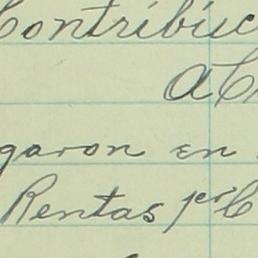 Contribuc
garon en
Rentas por C